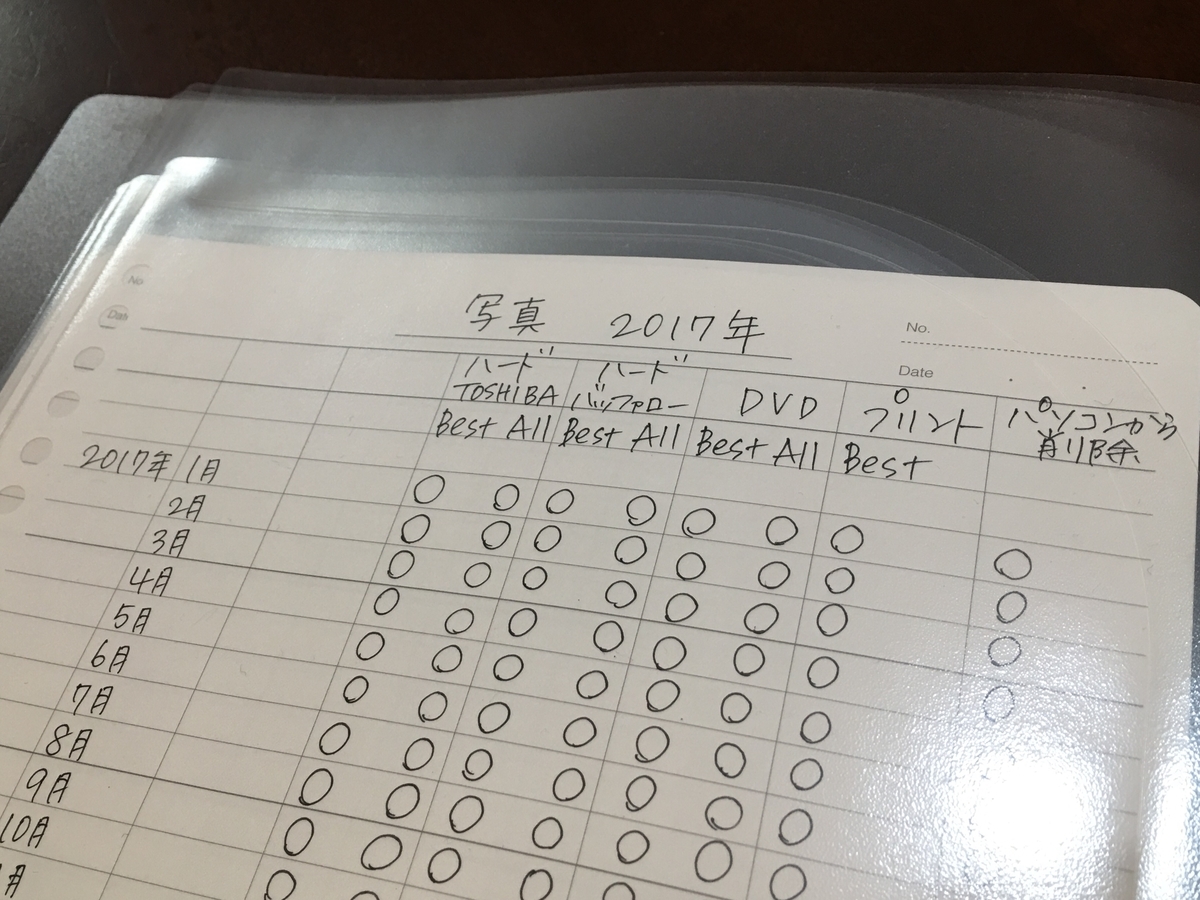 No
Dat
写真 2017年
No.
Date
ハード ハード DVD プリント パソコンから
TOSHIBA バッファロー 削除
Best All Best All Best All Best
2017年 1月 ○ ○ ○ ○ ○ ○ ○ ○
2月 ○ ○ ○ ○ ○ ○ ○ ○
3月 ○ ○ ○ ○ ○ ○ ○ ○
4月 ○ ○ ○ ○ ○ ○ ○ ○
5月 ○ ○ ○ ○ ○ ○ ○
6月 ○ ○ ○ ○ ○ ○ ○
7月 ○ ○ ○ ○ ○ ○ ○
8月 ○ ○ ○ ○ ○ ○ ○
9月 ○ ○ ○ ○ ○ ○ ○
10月 ○ ○ ○ ○ ○ ○ ○